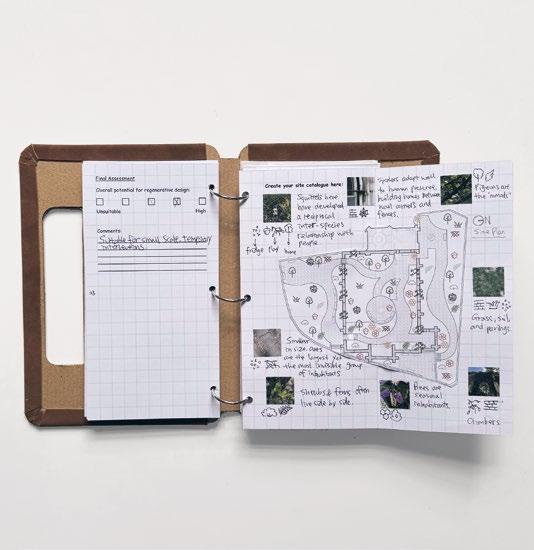 Final Assessment
Overall potential for regenerative design:
Unsuitable High
Comments:
Suitable for small scale, temporary
interventions.
Create your site catalogue here:
Squirrels here
have developed
a reciprocal
inter-species
relationship with
people.
Spiders adapt well
to human presence,
building homes between
wall corners and
fences.
Pigeons are
the nomads
N
Site Plan
Grass, soil
and pavings.
Smaller
in size, ants
are the largest yet
the most invisible group
of inhabitants
Shrubs & ferns often
live side by side.
Bees are
seasonal
inhabitants.
Climbers